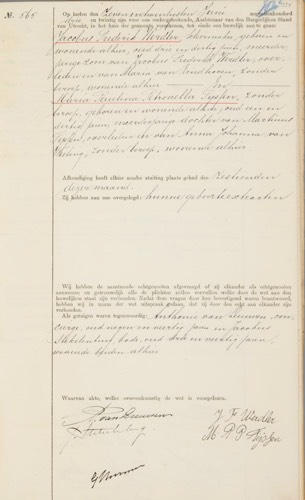 №. 565
Op heden den Zeven en twintigsten Juni negentienhonderd
drie en twintig zijn voor ons ondergeteekende, Ambtenaar van den Burgerlijken Stand
van Utrecht, in het huis der gemeente verschenen, ten einde een huwelijk aan te gaan:
Jacobus Frederik Werdler, schoenmaker, geboren en
wonende alhier, oud drie en dertig jaar, meerder-
jarige zoon van Jacobus Frederik Werdler, over-
leden en van Maria van zonder
beroep, wonende alhier En
Maria Petronella Tijssen, zonder
beroep, geboren en wonende alhier, oud een en
dertig jaar, meerderjarige dochter van Martinus
Tijssen, overleden en van Anna Johanna van
zonder beroep, wonende alhier
Afkondiging heeft alhier zonder stuiting plaats gehad den zestienden
dezer maand.
Zij hebben aan ons overgelegd: hunne geboorteextracten
Wij hebben de aanstaande echtgenooten afgevraagd of zij elkander als echtgenooten
aannemen en getrouwelijk alle de plichten zullen vervullen welke door de wet aan den
huwelijken staat zijn verbonden. Nadat deze vragen door hen bevestigend waren beantwoord,
hebben wij in naam der wet uitspraak gedaan, dat zij door den echt aan elkander zijn
verbonden.
Als getuigen waren tegenwoordig: Anthonie van Leeuwen, con-
cierge, oud negen en veertig jaar en Jacobus
bode, oud drie en veertig jaar,
wonende beiden alhier
Waarvan akte, welke overeenkomstig de wet is voorgelezen.
van Leeuwen
J F Werdler
M P P Tijssen